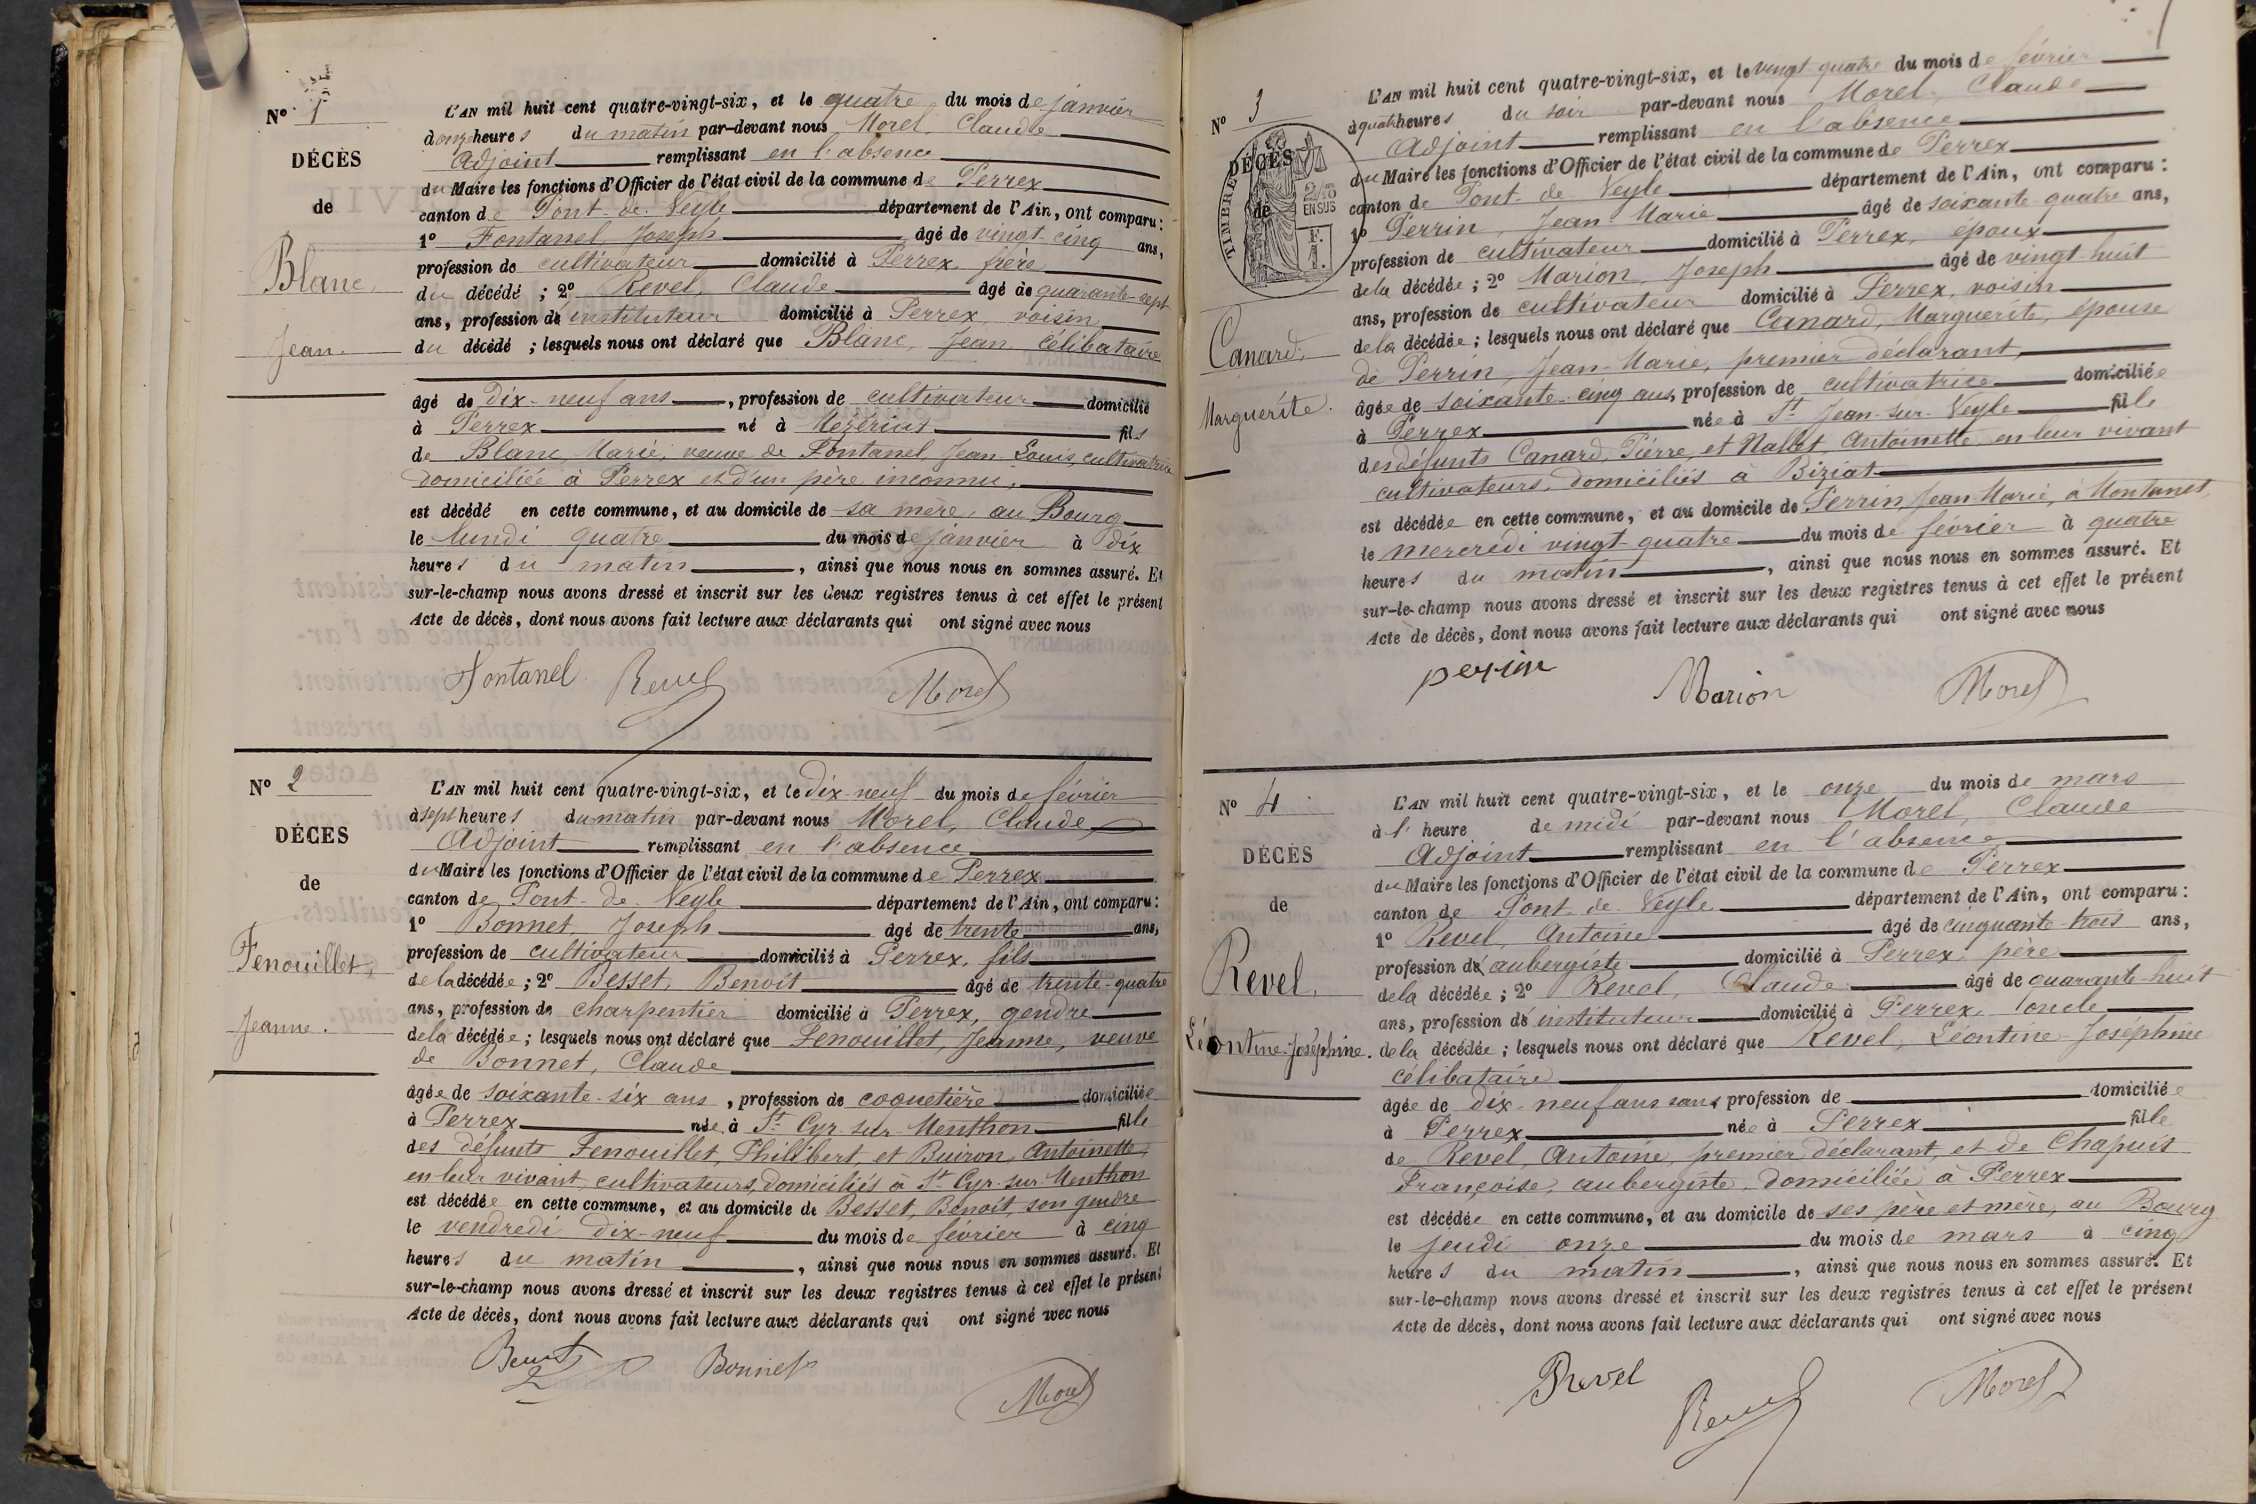 Nº 1
DÉCÈS
de
Blanc,
Jean.
L'AN mil huit cent quatre-vingt-six, et le quatre du mois de janvier
à onze heures du matin par-devant nous Morel, Claude
Adjoint remplissant en l'absence
du Maire les fonctions d'Officier de l'état civil de la commune de Perrex
canton de Pont-de-Veyle département de l'Ain, ont comparu:
1º Fontanel, Joseph âgé de vingt-cinq ans,
profession de cultivateur domicilié à Perrex, frère
du décédé ; 2º Revel, Claude âgé de quarante-sept
ans, profession d' instituteur domicilié à Perrex, voisin
du décédé ; lesquels nous ont déclaré que Blanc, Jean célibataire
âgé de dix-neuf ans, profession de cultivateur domicilié
à Perrex né à Mézériat fils
de Blanc, Marie, veuve de Fontanel, Jean-Louis, cultivatrice
domiciliée à Perrex et d'un père inconnu,
est décédé en cette commune, et au domicile de sa mère, au Bourg
le lundi quatre du mois de janvier à dix
heures du matin, ainsi que nous nous en sommes assuré. Et
sur-le-champ nous avons dressé et inscrit sur les deux registres tenus à cet effet le présent
Acte de décès, dont nous avons fait lecture aux déclarants qui ont signé avec nous
Fontanel Revel Morel
Nº 2
DÉCÈS
de
Fenouillet,
Jeanne.
L'AN mil huit cent quatre-vingt-six, et le dix-neuf du mois de février
à sept heures du matin par-devant nous Morel, Claude
Adjoint remplissant en l'absence
du Maire les fonctions d'Officier de l'état civil de la commune de Perrex
canton de Pont-de-Veyle département de l'Ain, ont comparu:
1º Bonnet, Joseph âgé de trente ans,
profession de cultivateur domicilié à Perrex, fils
de la décédée ; 2º Besset, Benoit âgé de trente-quatre
ans, profession de charpentier domicilié à Perrex, gendre
de la décédée ; lesquels nous ont déclaré que Fenouillet, Jeanne, veuve
de Bonnet, Claude
âgée de soixante-six ans, profession de coquetière domiciliée
à Perrex née à St Cyr-sur-Menthon fille
des défunts Fenouillet, Philibert, et Buiron, Antoinette,
en leur vivant cultivateurs, domiciliés à St Cyr-sur-Menthon
est décédée en cette commune, et au domicile de Besset, Benoit, son gendre
le vendredi dix-neuf du mois de février à cinq
heures du matin, ainsi que nous nous en sommes assuré. Et
sur-le-champ nous avons dressé et inscrit sur les deux registres tenus à cet effet le présent
Acte de décès, dont nous avons fait lecture aux déclarants qui ont signé avec nous
Bonnet Morel
Nº 3
DÉCÈS
de
TIMBRE
2/10 EN SUS
F.
1.
Canard,
Marguerite.
L'AN mil huit cent quatre-vingt-six, et le vingt-quatre du mois de février
à quatre heures du soir par-devant nous Morel, Claude
Adjoint remplissant en l'absence
du Maire les fonctions d'Officier de l'état civil de la commune de Perrex
canton de Pont-de-Veyle département de l'Ain, ont comparu :
1º Perrin, Jean-Marie âgé de soixante-quatre ans,
profession de cultivateur domicilié à Perrex, époux
de la décédée ; 2º Marion, Joseph âgé de vingt-huit
ans, profession de cultivateur domicilié à Perrex, voisin
de la décédée ; lesquels nous ont déclaré que Canard, Marguerite, épouse
de Perrin, Jean-Marie, premier déclarant,
âgée de soixante-cinq ans, profession de cultivatrice domiciliée
à Perrex née à St Jean-sur-Veyle fille
des défunts Canard, Pierre, et Nallet, Antoinette, en leur vivant
cultivateurs, domiciliés à Biziat
est décédée en cette commune, et au domicile de Perrin, Jean-Marie, à Montanet,
le mercredi vingt-quatre du mois de février à quatre
heures du matin, ainsi que nous nous en sommes assuré. Et
sur-le-champ nous avons dressé et inscrit sur les deux registres tenus à cet effet le présent
Acte de décès, dont nous avons fait lecture aux déclarants qui ont signé avec nous
perrin Marion Morel
Nº 4
DÉCÈS
de
Revel,
Léontine-Joséphine.
L'AN mil huit cent quatre-vingt-six, et le onze du mois de mars
à l' heure de midi par-devant nous Morel, Claude
Adjoint remplissant en l'absence
du Maire les fonctions d'Officier de l'état civil de la commune de Perrex
canton de Pont-de-Veyle département de l'Ain, ont comparu :
1º Revel, Antoine âgé de cinquante-trois ans,
profession d' aubergiste domicilié à Perrex, père
de la décédée ; 2º Revel, Claude âgé de quarante-huit
ans, profession d' instituteur domicilié à Perrex, oncle
de la décédée ; lesquels nous ont déclaré que Revel, Léontine-Joséphine
célibataire
âgée de dix-neuf ans sans profession de domiciliée
à Perrex née à Perrex fille
de Revel, Antoine, premier déclarant, et de Chapuis
Françoise, aubergiste, domiciliée à Perrex
est décédée en cette commune, et au domicile de ses père et mère, au Bourg
le jeudi onze du mois de mars à cinq
heures du matin, ainsi que nous nous en sommes assuré. Et
sur-le-champ nous avons dressé et inscrit sur les deux registrés tenus à cet effet le présent
Acte de décès, dont nous avons fait lecture aux déclarants qui ont signé avec nous
Revel Revel Morel